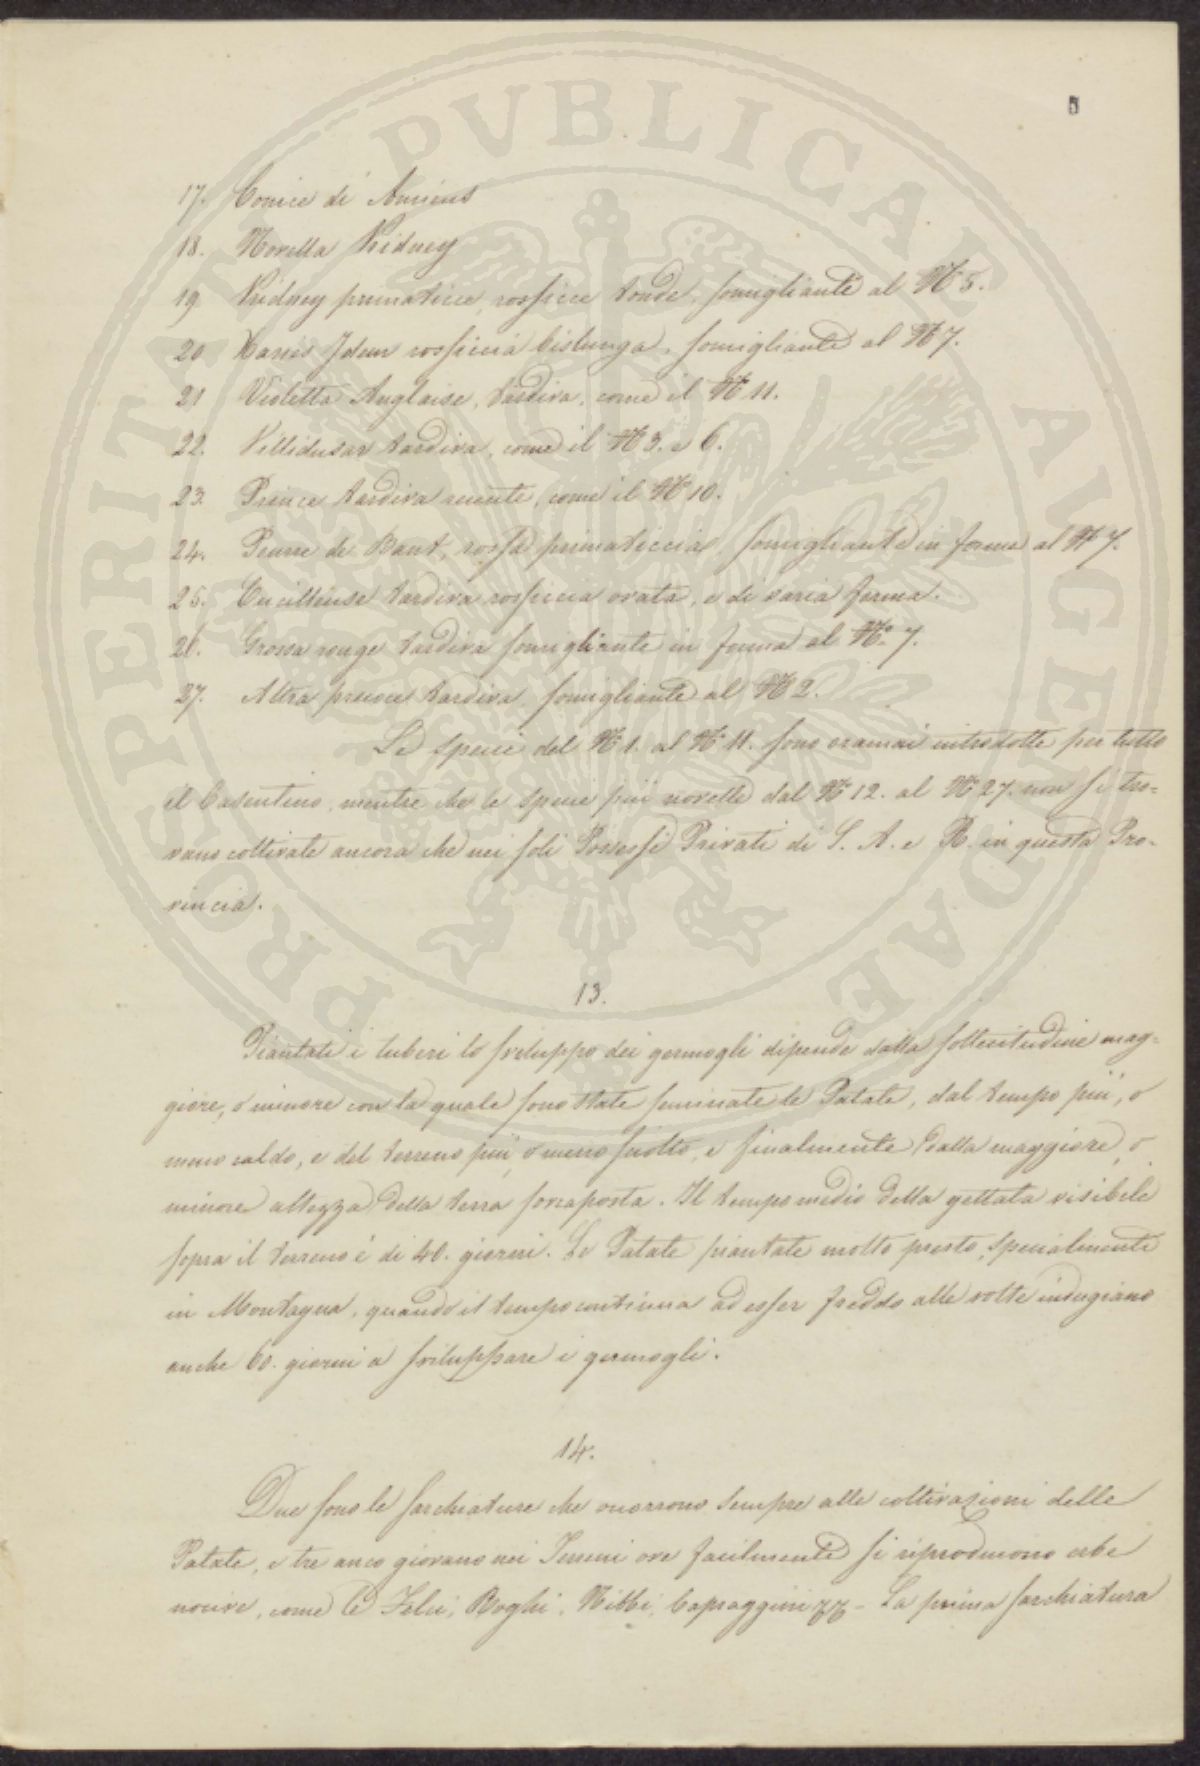 PROSPERITATI PVBLICAE AVGENDAE
17. Conice di Amiens
18. Morella Kidney
19 Kidney primaticce, rossicce tonde, somigliante al N° 5.
20 rossiccia bislunga, somigliante al N° 7.
21 Violetta Anglaise, tardiva, come il N° 11.
22. tardiva, come il N° 3. e 6.
23. Prince tardiva come il N° 10.
24. rossa primaticcia somigliante in forma al N° 7.
25. tardiva rossiccia ovata, e di varia forma.
26. Grossa rouge tardiva somigliante in forma al N° 7.
27. Altra precoce tardiva somigliante al N° 2.
Le specie del N° 1. al N° 11. sono oramai introdotte per tutto
il Casentino, mentre che le specie più novelle dal N° 12. al N° 27. non si tro=
vano coltivate ancora che nei soli Possessi Privati di S. A. e R. in questa Pro=
vincia.
13.
Piantati i tuberi lo sviluppo dei germogli dipende dalla sollecitudine mag=
giore, o minore con la quale sono state seminate le Patate, dal tempo più, o
meno caldo, e del terreno più, o meno sciolto, e finalmente dalla maggiore, o
minore altezza della terra sovraposta. Il tempo medio della gettata visibile
sopra il terreno è di 40. giorni. Le Patate piantate molto presto, specialmente
in Montagna, quando il tempo continua ad esser freddo alle volte indugiano
anche 60. giorni a sviluppare i germogli.
14.
Due sono le sarchiature che occorrono sempre alle coltivazioni delle
Patate, e tre anco giovano nei Terreni ove facilmente si riproducono erbe
nocive, come le Felci, La prima sarchiatura